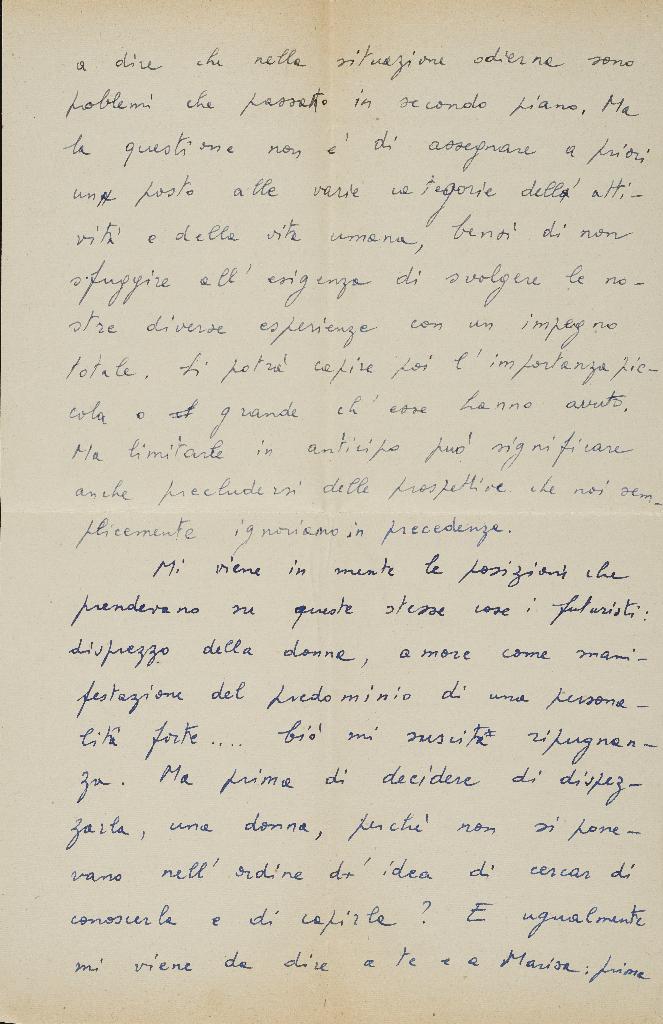 a dire che nella situazione odierna sono
problemi che passano in secondo piano. Ma
la questione non è di assegnare a priori
un posto alle varie categorie dell' atti-
vità e della vita umana, bensì di non
sfuggire all' esigenza di svolgere le no-
stre diverse esperienze con un impegno
totale. Si potrà capire poi l' importanza pic-
cola o grande ch' esse hanno avuto.
Ma limitarle in anticipo può significare
anche precludersi delle prospettive che noi sem-
plicemente ignoriamo in precedenza.
Mi viene in mente le posizioni che
prendevano su queste stesse cose i futuristi:
disprezzo della donna, amore come mani-
festazione del predominio di una persona-
lità forte.... Ciò mi suscita ripugnan-
za. Ma prima di decidere di disprez-
zarla, una donna, perché non si pone-
vano nell' ordine d' idea di cercar di
conoscerla e di capirla? E ugualmente
mi viene da dire a te e a Marisa: prima